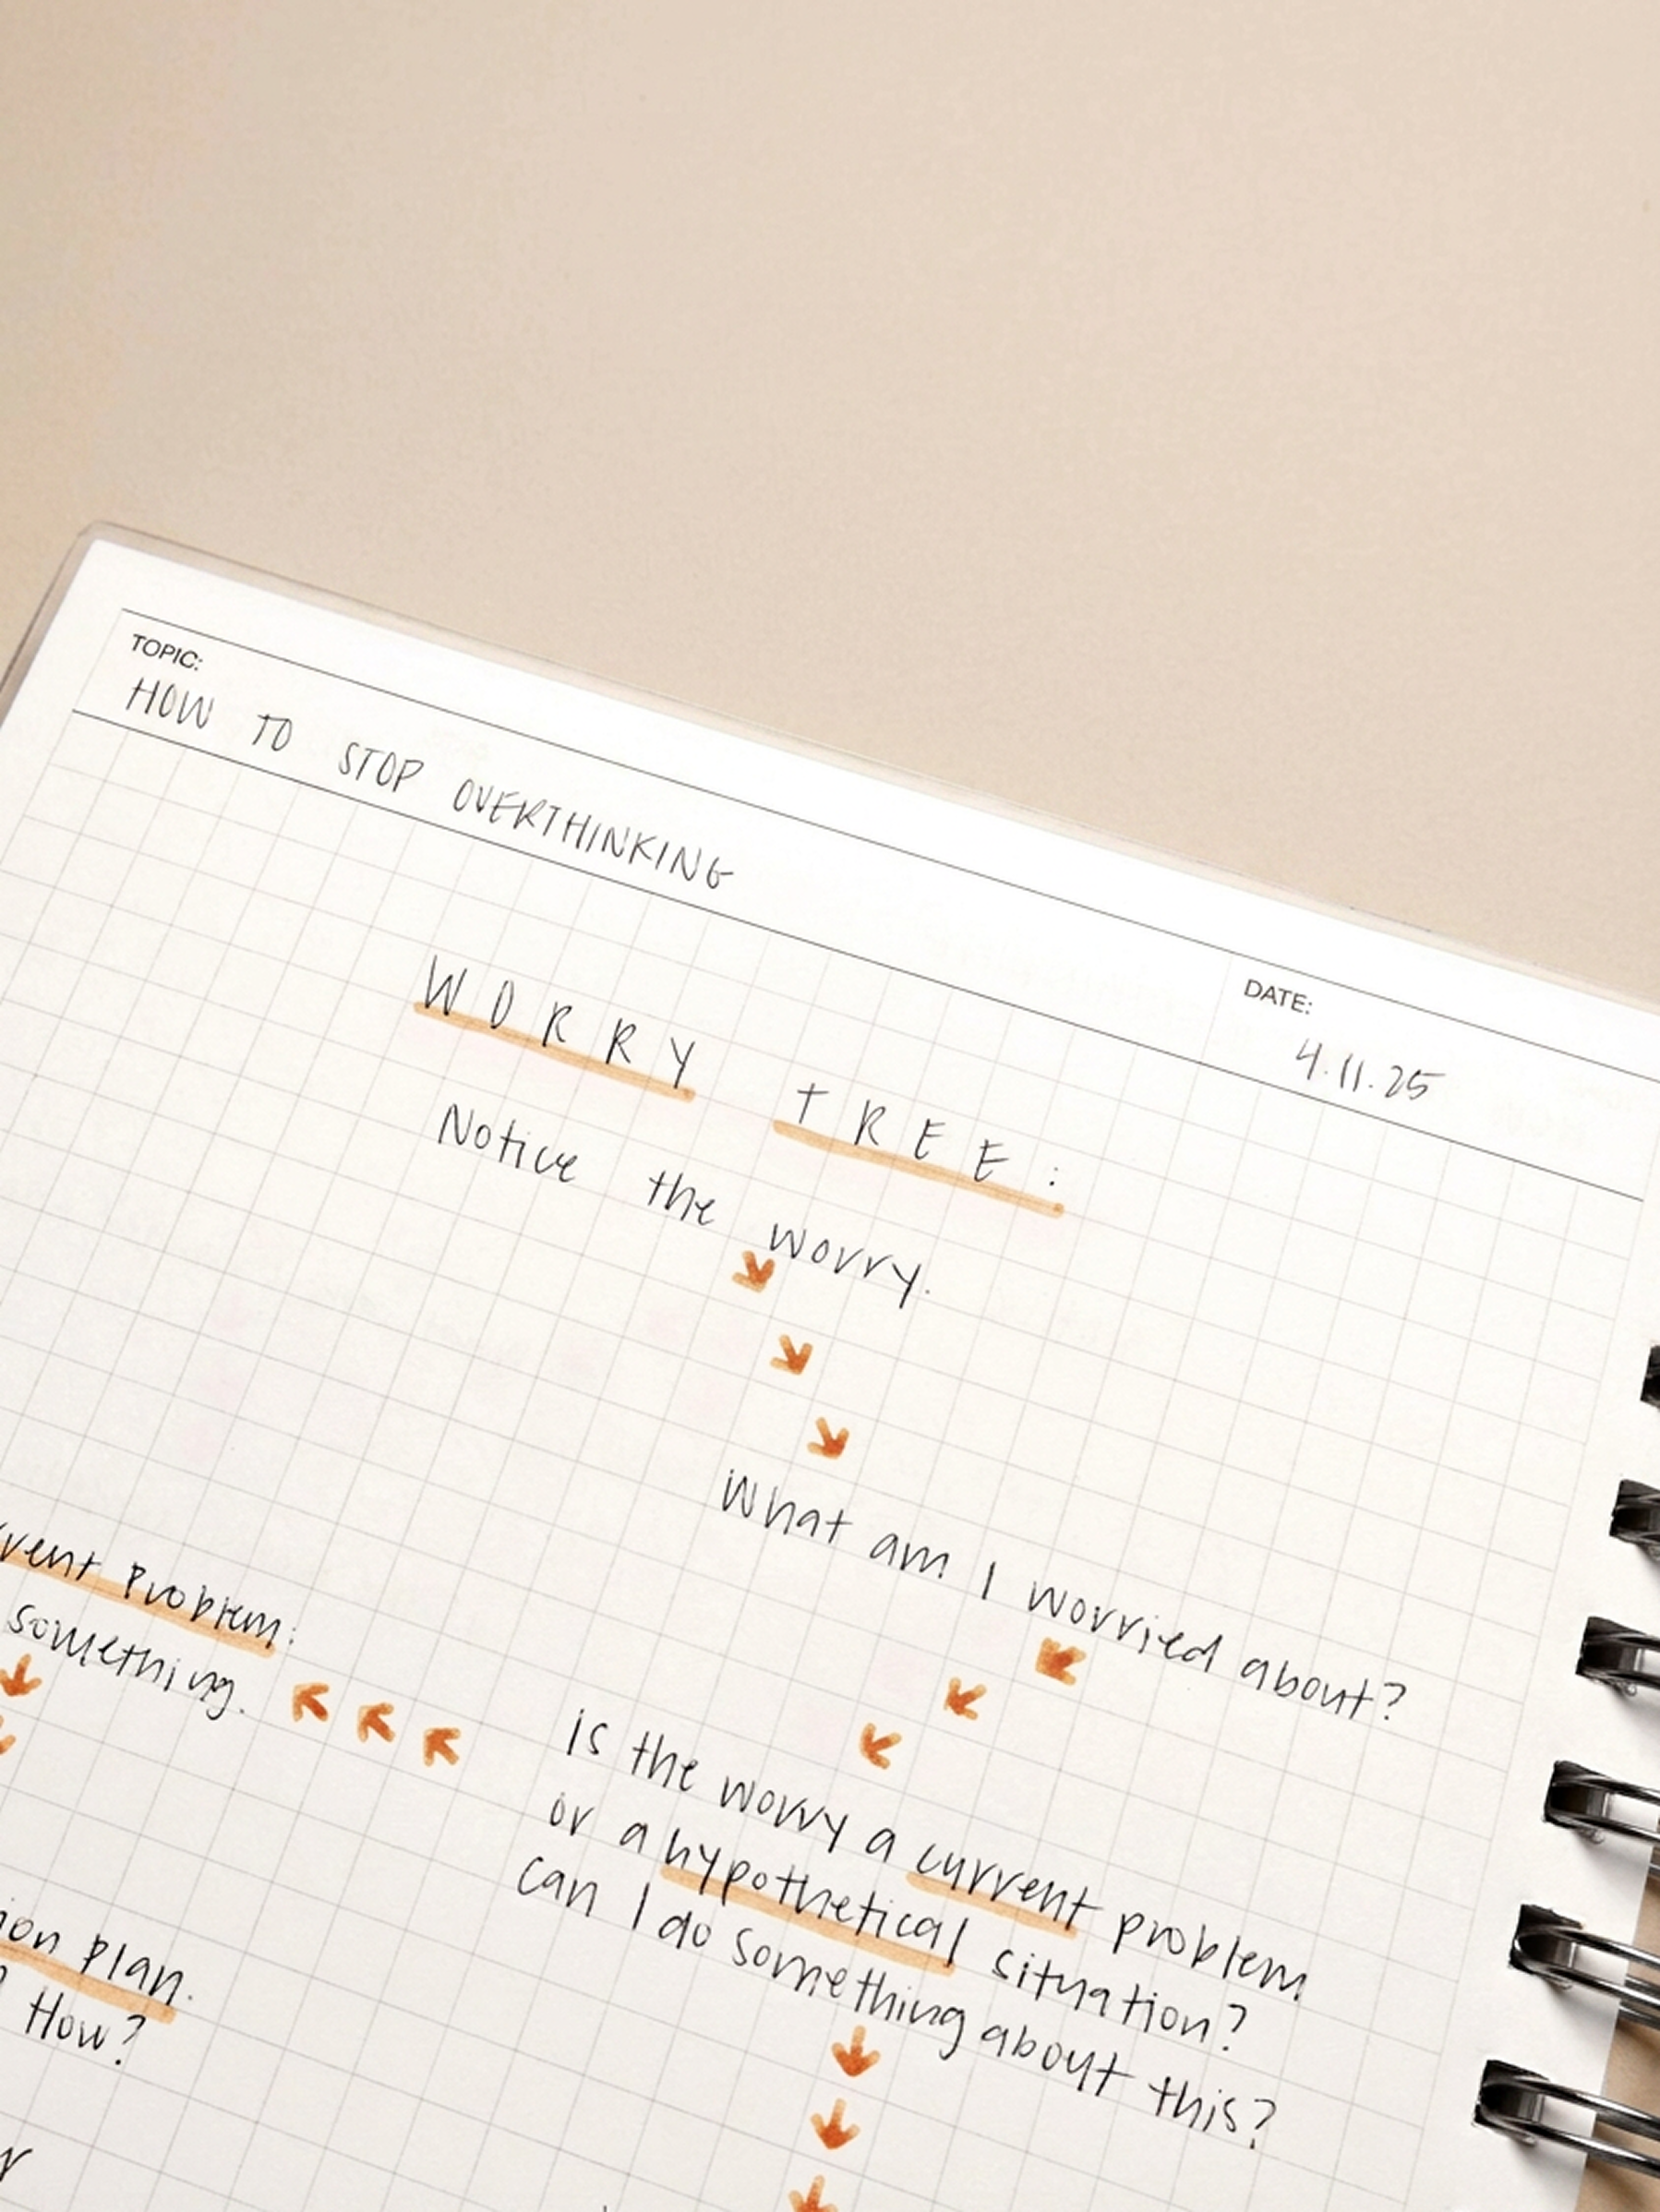 TOPIC:
HOW TO STOP OVERTHINKING
DATE:
4.11.25
WORRY TREE:
Notice the worry.
What am I worried about?
is the worry a current problem
or a hypothetical situation?
can I do something about this?
Problem:
something.
plan.
How?